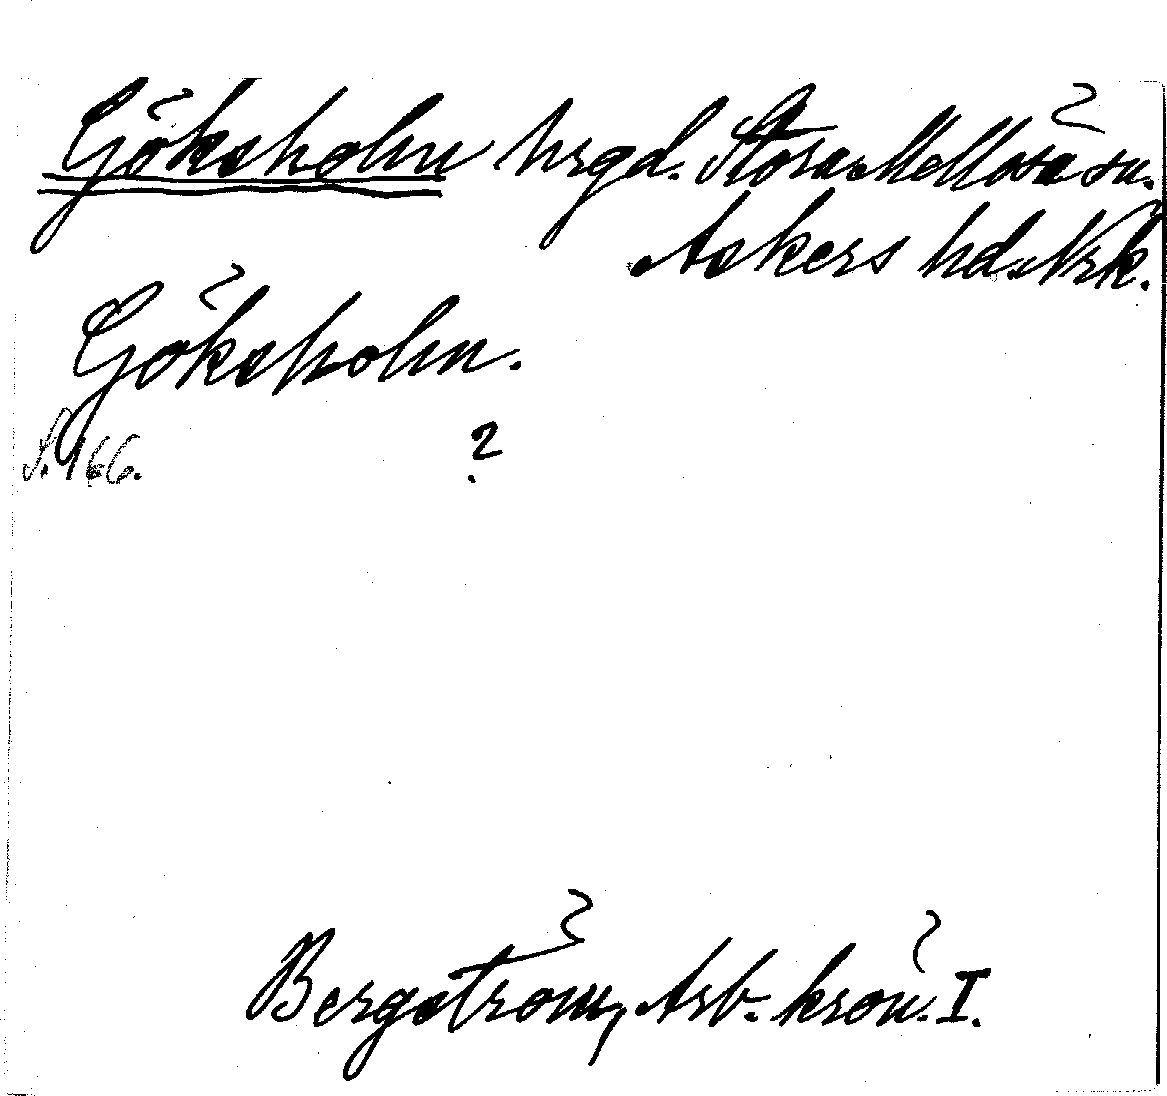 Göksholm hrgd. Stora Mellösa sn.
Askers hd. Nrk.
Göksholm.
S. 166.
?
Bergström, Arb. krön. I.